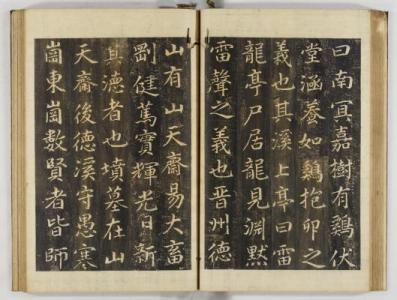 曰南冥嘉樹有鷄伏
堂涵養如鷄抱卵之
義也其溪上亭曰雷
龍亭尸居龍見淵默
雷聲之義也晋州德
山有山天齋易大畜
剛健篤實輝光日新
其德者也墳墓在山
天齋後德溪守愚寒
崗東崗數賢者皆師